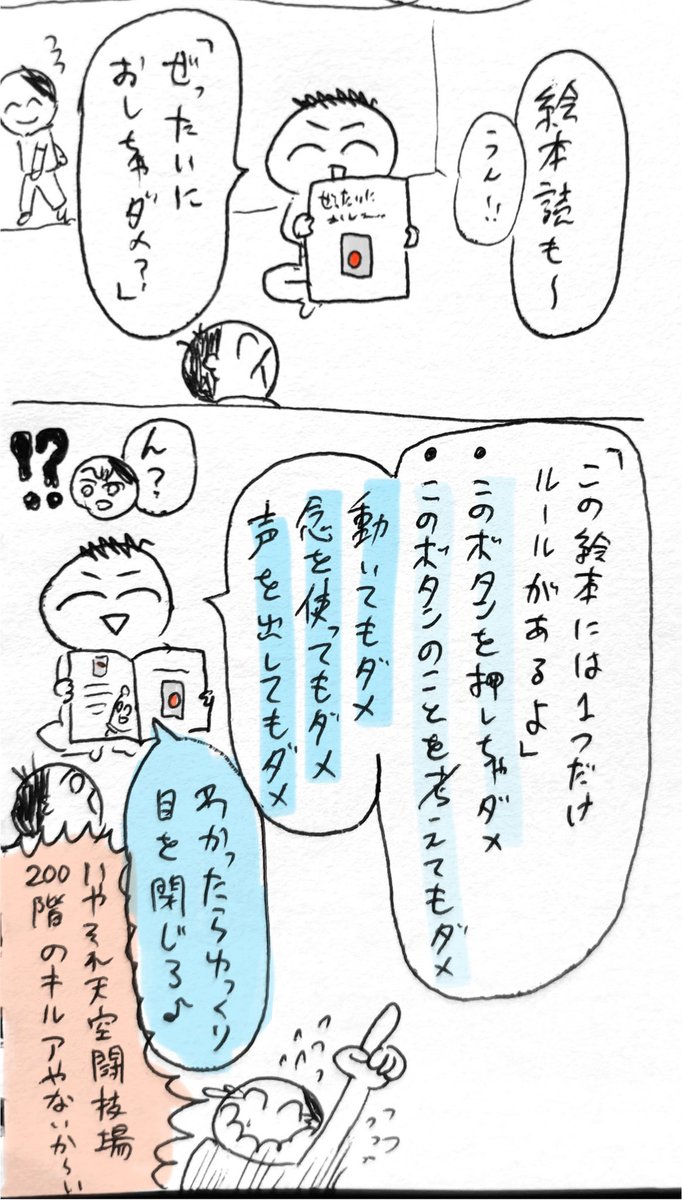 絵本読も〜
うん!!
「ぜったいに
おしちゃダメ?」
ぜったいに
「この絵本には1つだけ
ルールがあるよ」
・このボタンを押しちゃダメ
・このボタンのことを考えてもダメ
動いてもダメ
念を使ってもダメ
声を出してもダメ
ん?
!?
わかったらゆっくり
目を閉じろ♪
いやそれ天空闘技場
200階のキルアやないか〜い